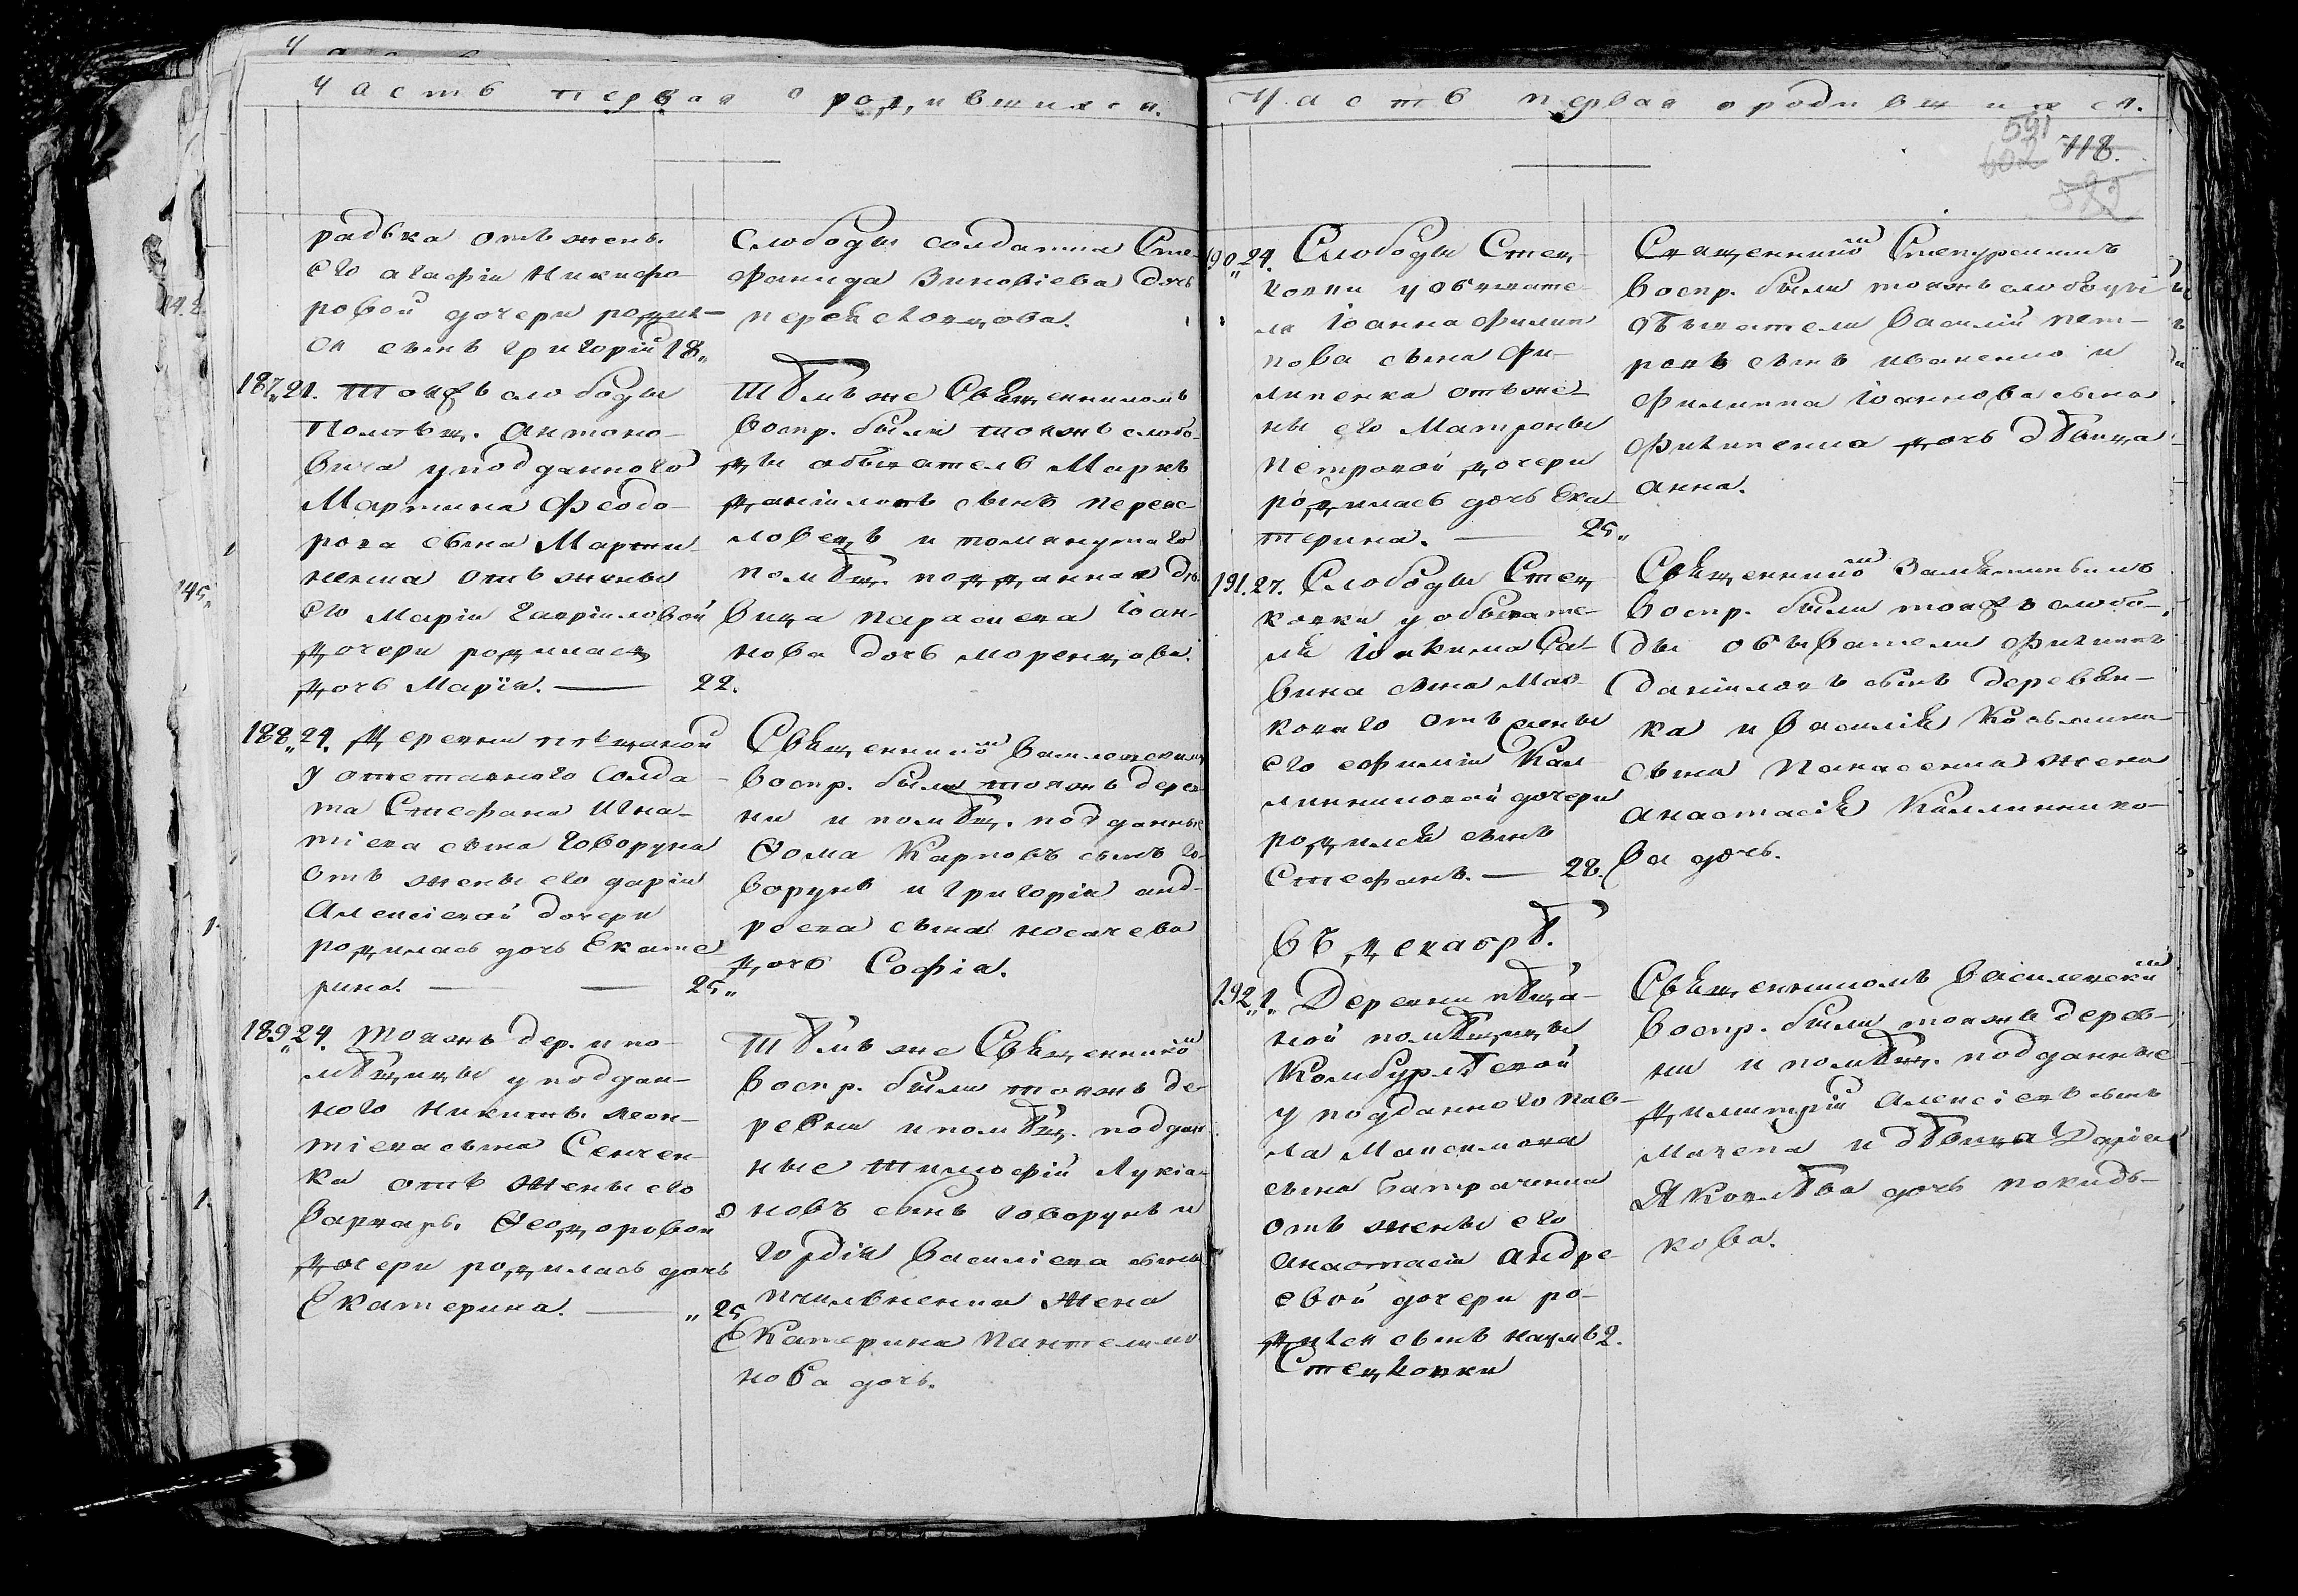 Часть первая о родившихся.
радька отъ жены
его агафіи Никифо-
ровой дочери родил-
ся сынъ григорій 18„
Слободы солдатка Сте-
фанида Зиновіева дочь
перескокцова.
187„ 21. Тояжъ слободы
Помѣщ. Антоно-
вича у подданного
Мартина Феодо-
рова сына Марти-
ненка отъ жены
его Маріи гавріиловой
дочери родилась
дочь Марія. — 22.
Тѣмъ же Священникомъ
воспр. были тояжъ слобо-
ды обыватель Маркъ
даніиловъ сынъ
и помянутаго
помѣщ. подданная дѣ-
вица параскева Іоан-
нова дочь моренцова.
188„ 24. Деревни пѣщаной
у отставного солда-
та Стефана Игна-
тіева сына говоруна
отъ жены его даріи
Алексіевой дочери
родилась дочь Екате-
рина. — 25„
Священникомъ Василевскимъ
воспр. были тояжъ дерев-
ни и помѣщ. подданные
Ѳома Карповъ сынъ го-
ворунъ и григорія анд-
реева сына носачева
дочь Софія.
189„ 24. Тояжъ дер. и по-
мѣщицы у поддан-
ного Никиты леон-
тіева сына Сенчен-
ка отъ жены его
варвары Ѳеодоровой
дочери родилась дочь
Екатерина. — „25
Тѣмъ же Священникомъ
воспр. были тояжъ де-
ревни и помѣщ. поддан-
ные Тимофій Лукіа-
новъ сынъ говорунъ и
гордія василіева сына
жена
Екатерина пантелимо
нова дочь.
Часть первая о родившихся.
591
602 718.
582
190„ 24. Слободы Стец-
ковки у обывате-
ля Іоанна Филип-
пова сына Фи-
липенка отъ же-
ны его Матроны
петровой дочери
родилась дочь Ека-
терина. — 25„
Священникомъ
воспр. были тояжъ слободы
обыватели василій пет-
ровъ сынъ иваненко и
Филиппа Іоаннова сына
Филипенка дочь дѣвица
анна.
191. 27. Слободы Стец-
ковки у обывате-
ля Іоакима Са-
вина сына Мав-
коваго отъ жены
его ефиміи Кал-
линниковой дочери
родился сынъ
Стефанъ. — 28.
Священникомъ
воспр. были тояжъ слобо-
ды обыватели Филиппъ
даніиловъ сынъ деревян-
ка и василія Козьмина
сына Панасенка жена
анастасія Каллиннико-
ва дочь.
въ декабрѣ.
192„ 1„ Деревни пѣща-
ной помѣщицы
Комбурлѣевой
у подданного пав-
ла Максимова
сына Батраченка
отъ жены его
анастасіи андре-
евой дочери ро-
дился сынъ наумъ 2.
Стецковки
Священникомъ Василевскимъ
воспр. были тояжъ дерев-
ни и помѣщ. подданные
димитрій Алексіевъ сынъ
и дѣвица Дарія
Яковлѣва дочь покидь-
кова.